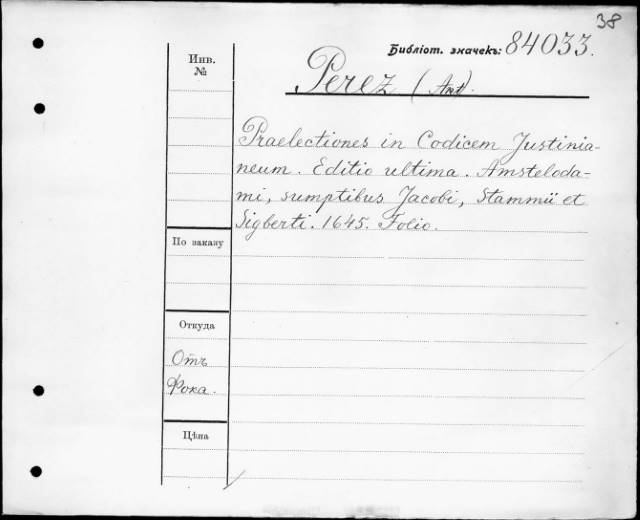 38
Библіот. значекъ: 84033.
Инв. №
Perez (Ant).
Praelectiones in Codicem Justinia-
neum. Editio ultima. Amsteloda-
mi, sumptibus Jacobi, Stammii et
Sigberti. 1645. Folio.
По заказу
Откуда
Отъ
Фока.
Цѣна